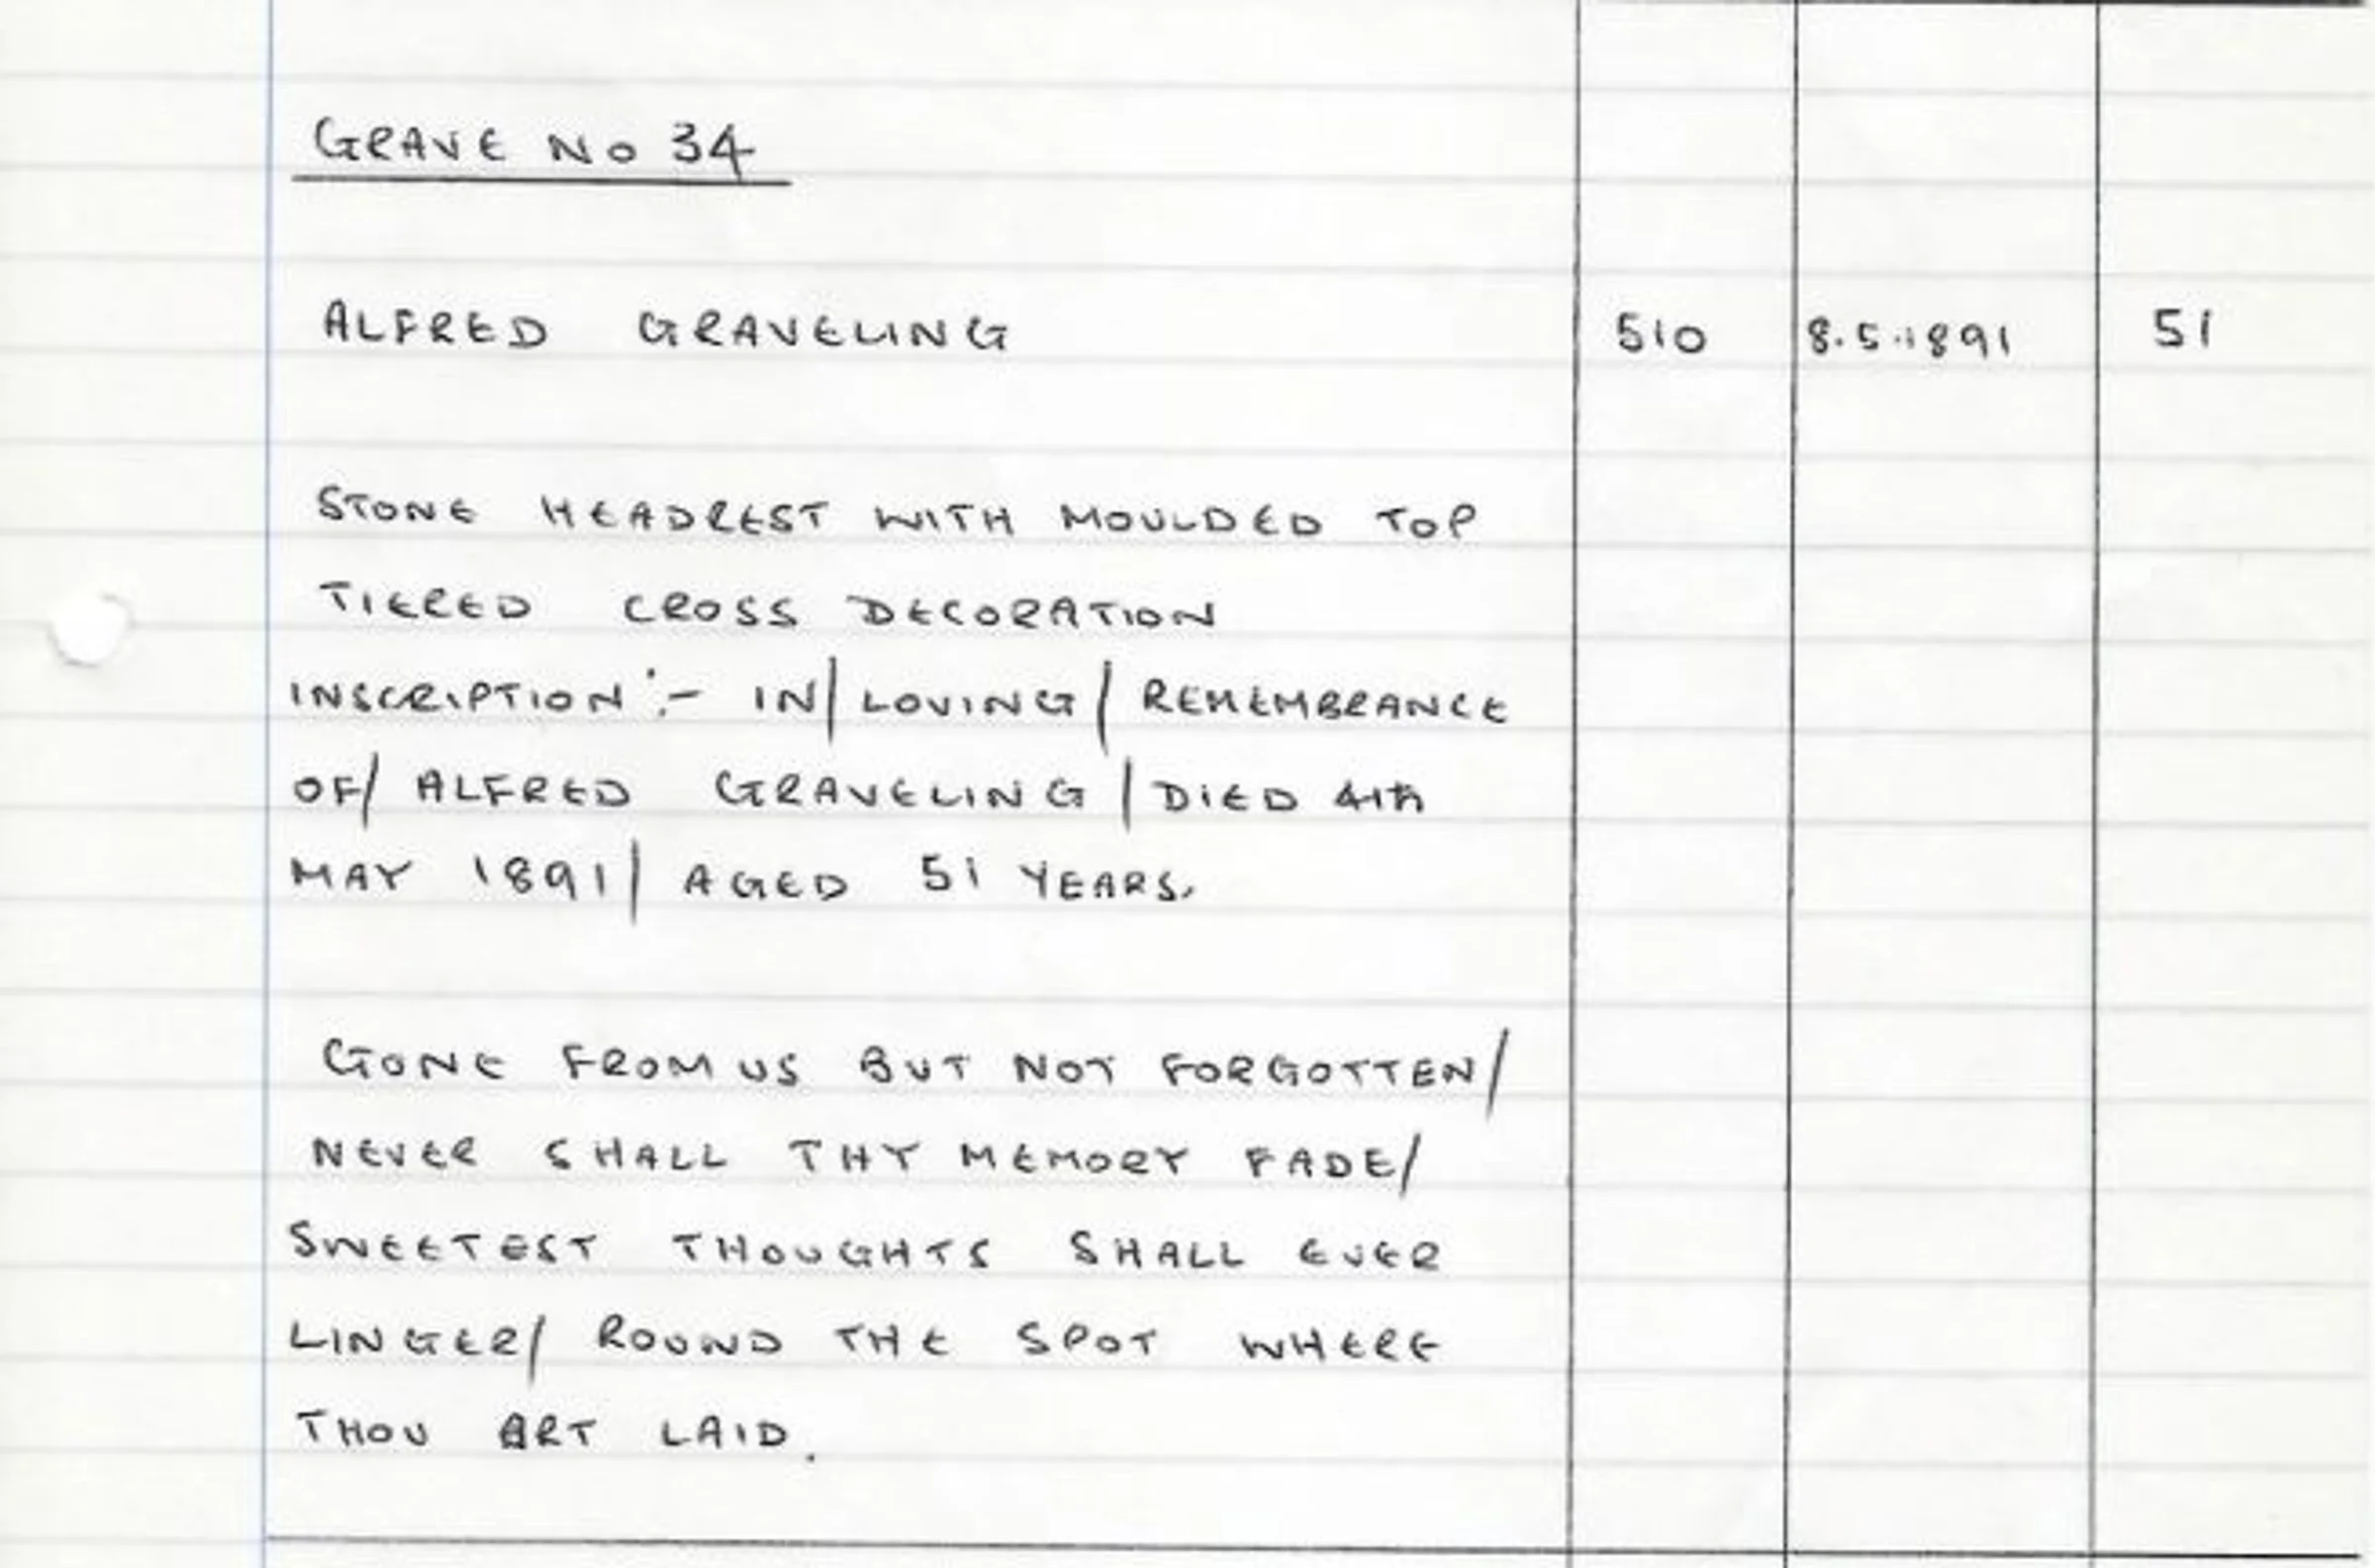 GRAVE No 34
ALFRED GRAVELING 510 8.5.1891 51
STONE HEADREST WITH MOULDED TOP
TIERED CROSS DECORATION
INSCRIPTION :- IN/ LOVING/ REMEMBRANCE
OF/ ALFRED GRAVELING / DIED 4TH
MAY 1891/ AGED 51 YEARS.
GONE FROM US BUT NOT FORGOTTEN/
NEVER SHALL THY MEMORY FADE/
SWEETEST THOUGHTS SHALL EVER
LINGER/ ROUND THE SPOT WHERE
THOU ART LAID.